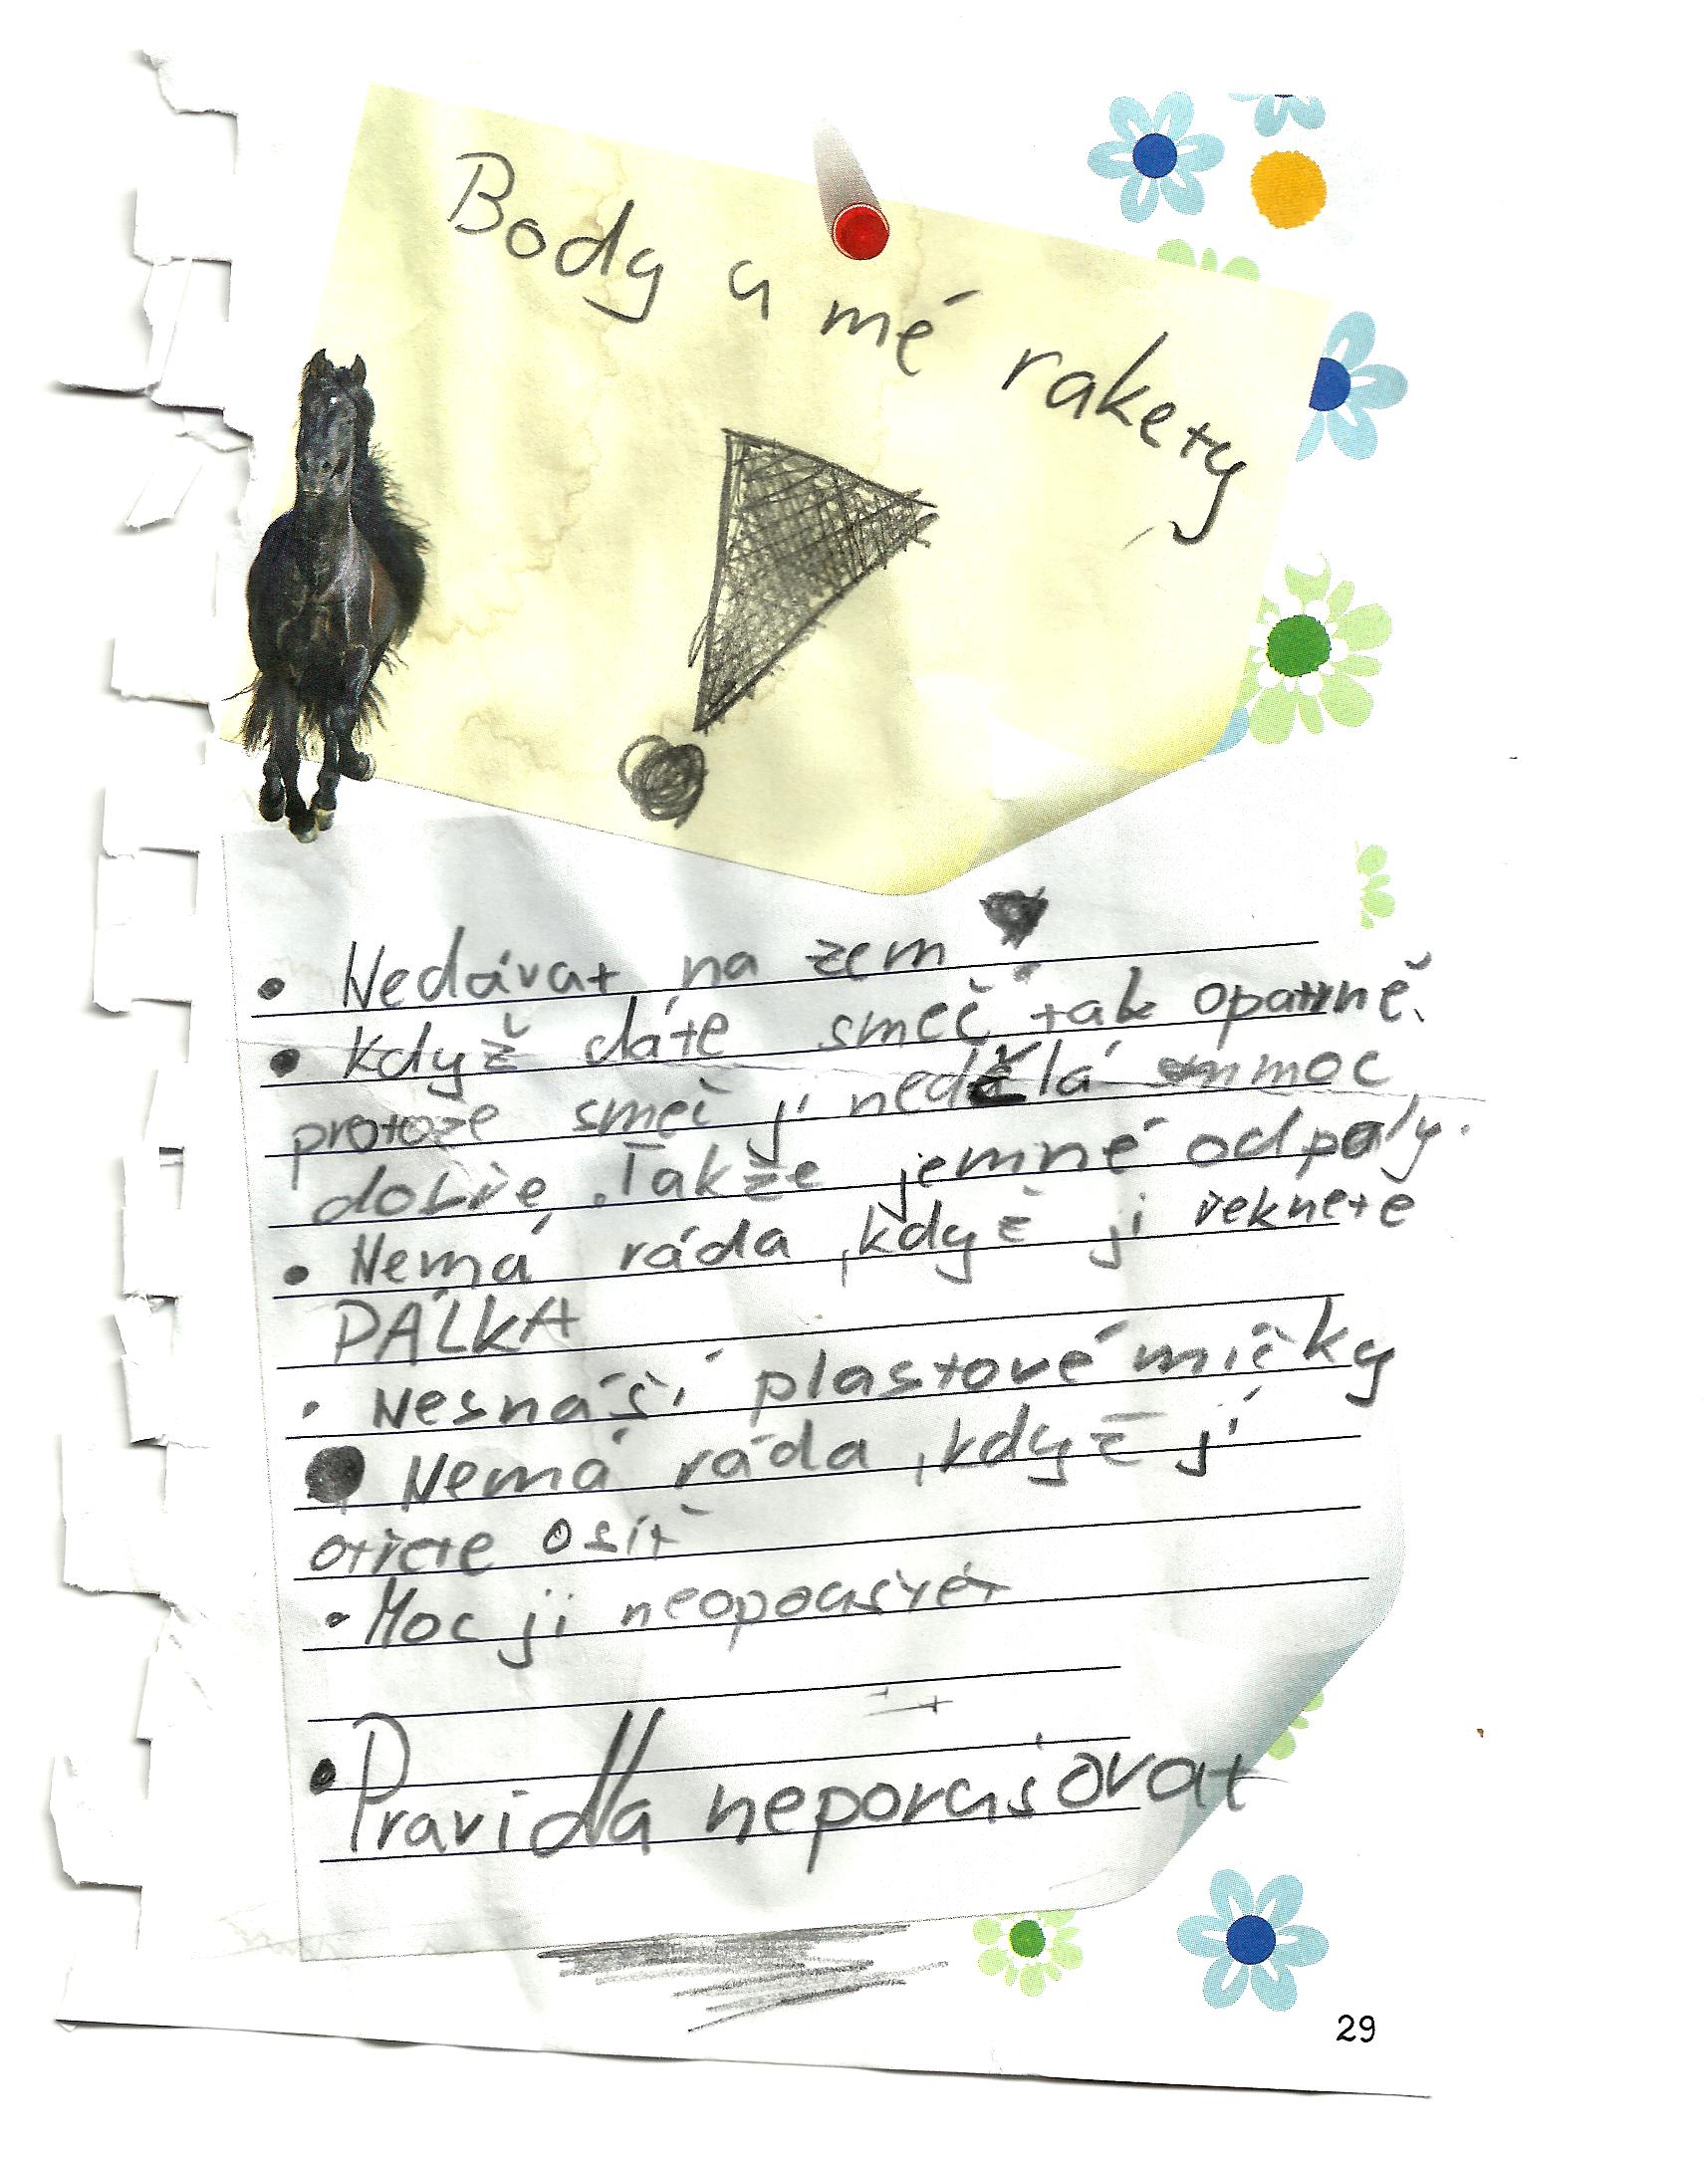 Body u mé rakety
• Nedávat na zem
• Když dáte smeč tak opatrně.
protože smeč jí nedělá moc
dobře. Takže jemné odpaly.
• Nemá ráda, když jí řeknete
PÁLKA
• Nesnáší plastové míčky
• Nemá ráda, když jí
otřete o síť
• Moc ji neopouštět
• Pravidla neporušovat
29